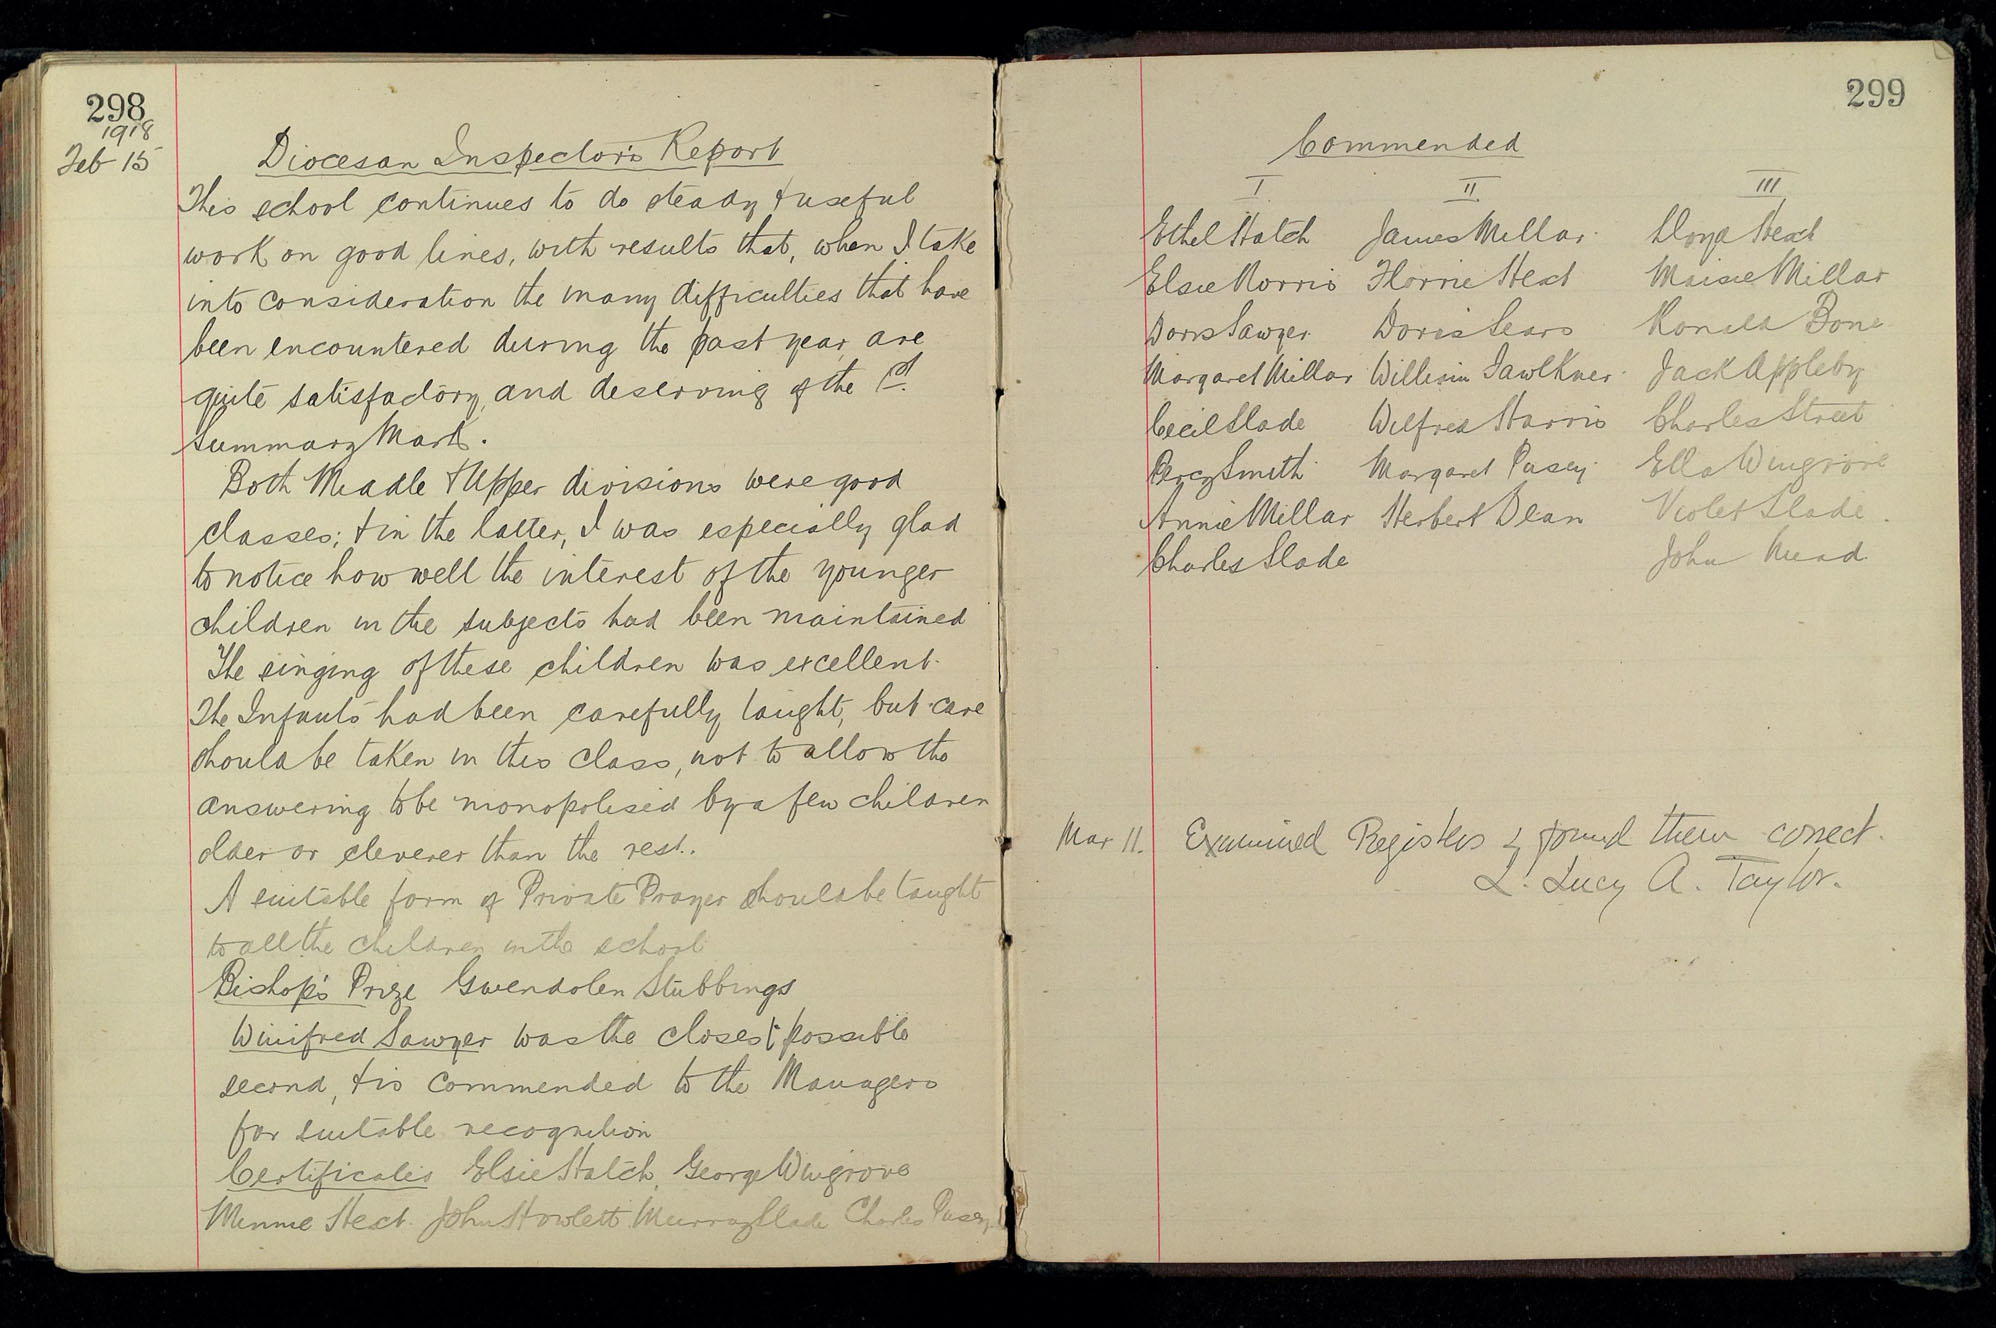 298
1918
Feb 15
Diocesan Inspector's Report
This school continues to do steady & useful
work on good lines, with results that, when I take
into consideration the many difficulties that have
been encountered during the past year, are
quite satisfactory, and deserving of the 1st.
Summary Mark.
Both Middle & Upper divisions were good
classes; & in the latter, I was especially glad
to notice how well the interest of the younger
children in the subjects had been maintained
The singing of these children was excellent.
The Infants had been carefully taught, but care
should be taken in this class, not to allow the
answering to be monopolised by a few children
older or cleverer than the rest.
A suitable form of Private Prayer should be taught
to all the children in the school
Bishop's Prize Gwendolen Stubbings
Winifred Sawyer was the closest possible
second, & is commended to the Managers
for suitable recognition
Certificates Elsie Hatch, George Wingrove
Minnie Hext. John Howlett Murray Slade Charles Pusey
299
Commended
I II III
Ethel Hatch James Millar. Hext
Elsie Norris Florrie Hext Maisie Millar
Doris Sawyer Doris Sears Ronald Bone
Margaret Millar William Fawlkner. Jack Appleby
Cecil Slade Wilfred Harris Charles Street
Percy Smith Margaret Pusey. Ella Wingrove
Annie Millar Herbert Dean Violet Slade.
Charles Slade John Mead
Mar 11. Examined Registers & found them correct.
L. Lucy A. Taylor.